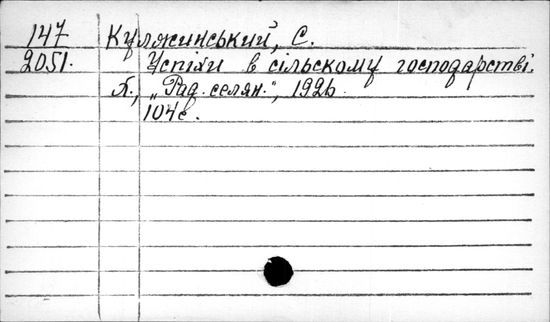 147 Кулжинський, С.
2051. Успіхи в сільскому господарстві.
Х., „Рад. селян.", 1926.
104с.